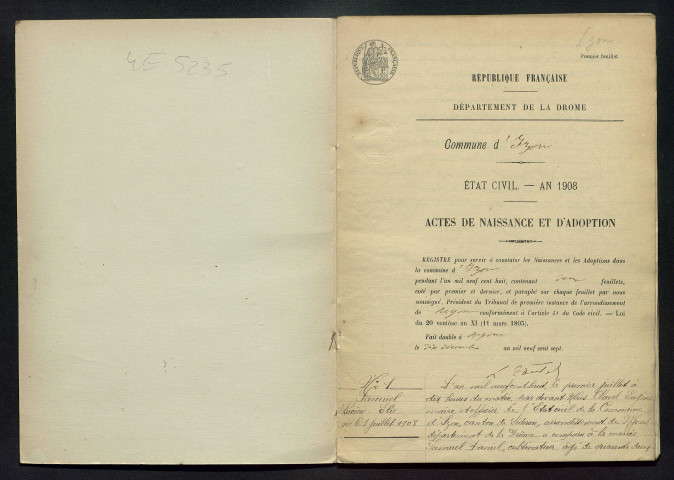 4E 5235
Izon
Premier feuillet
RÉPUBLIQUE FRANÇAISE
DÉPARTEMENT DE LA DROME
Commune d'Izon
ÉTAT CIVIL. — AN 1908
ACTES DE NAISSANCE ET D'ADOPTION
REGISTRE pour servir à constater les Naissances et les Adoptions dans
la commune d'Izon
pendant l'an mil neuf cent huit, contenant deux feuillets,
coté par premier et dernier, et paraphé sur chaque feuillet par nous
soussigné, Président du Tribunal de première instance de l'arrondissement
de Nyons conformément à l'article 41 du Code civil. — Loi
du 20 ventôse an XI (11 mars 1803).
Fait double à Nyons
le dix décembre an mil neuf cent sept.
No 1
né le 1 juillet 1908
L'an mil neuf cent huit, le premier juillet à
dix heures du matin, par devant Nous
maire et officier de l'Etat civil de la Commune
d'Izon, canton de Séderon, arrondissement de Nyons
département de la Drôme a comparu à la mairie
Daniel, cultivateur, âgé de quarante deux